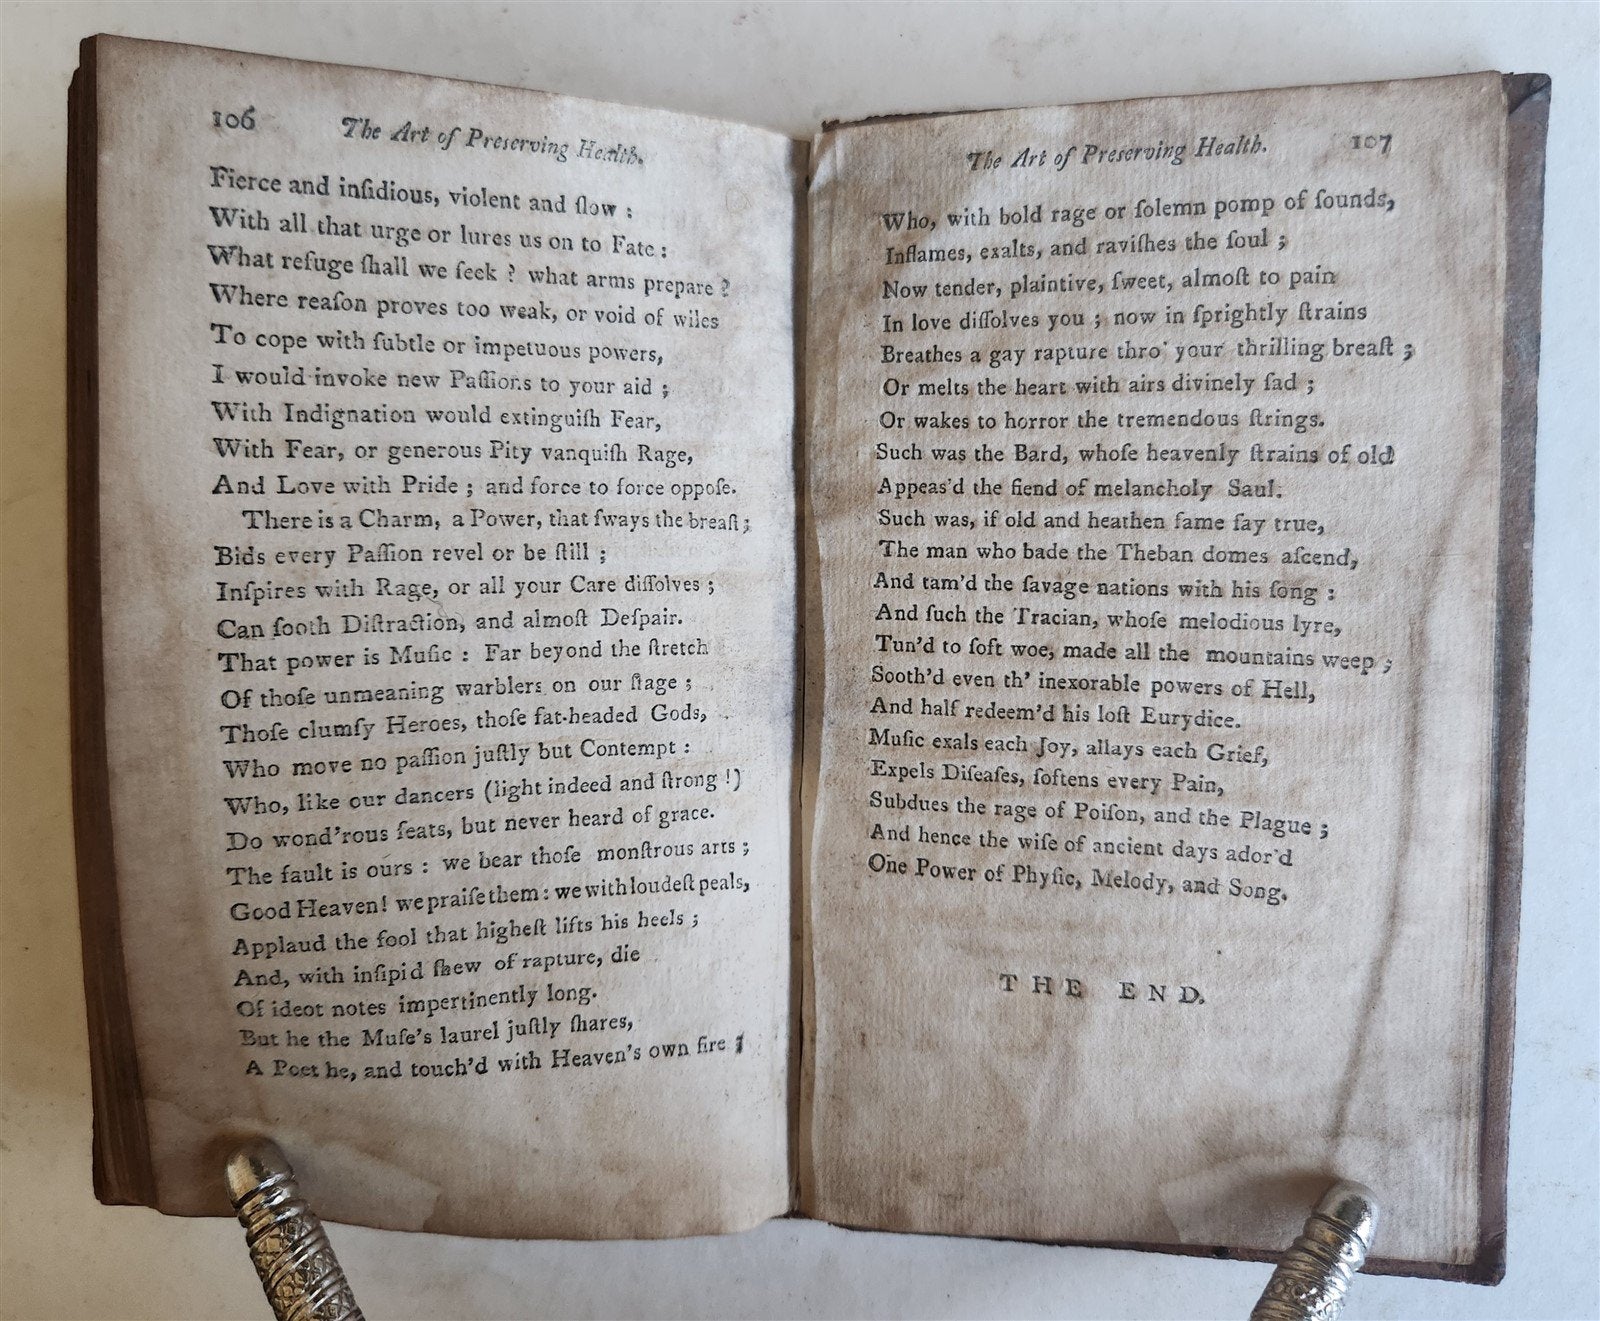 106 The Art of Preserving Health.
Fierce and inſidious, violent and ſlow :
With all that urge or lures us on to Fate :
What refuge ſhall we ſeek ? what arms prepare ?
Where reaſon proves too weak, or void of wiles
To cope with ſubtle or impetuous powers,
I would invoke new Paſſions to your aid ;
With Indignation would extinguiſh Fear,
With Fear, or generous Pity vanquiſh Rage,
And Love with Pride ; and force to force oppoſe.
There is a Charm, a Power, that ſways the breaſt ;
Bids every Paſſion revel or be ſtill ;
Inſpires with Rage, or all your Care diſſolves ;
Can ſooth Diſtraction, and almoſt Deſpair.
That power is Muſic : Far beyond the ſtretch
Of thoſe unmeaning warblers on our ſtage ;
Thoſe clumſy Heroes, thoſe fat-headed Gods,
Who move no paſſion juſtly but Contempt :
Who, like our dancers (light indeed and ſtrong !)
Do wond'rous feats, but never heard of grace.
The fault is ours : we bear thoſe monſtrous arts ;
Good Heaven! we praiſe them : we with loudeſt peals,
Applaud the fool that higheſt lifts his heels ;
And, with inſipid ſhew of rapture, die
Of ideot notes impertinently long.
But he the Muſe's laurel juſtly ſhares,
A Poet he, and touch'd with Heaven's own fire ;
The Art of Preserving Health. 107
Who, with bold rage or ſolemn pomp of ſounds,
Inflames, exalts, and raviſhes the ſoul ;
Now tender, plaintive, ſweet, almoſt to pain
In love diſſolves you ; now in ſprightly ſtrains
Breathes a gay rapture thro' your thrilling breaſt ;
Or melts the heart with airs divinely ſad ;
Or wakes to horror the tremendous ſtrings.
Such was the Bard, whoſe heavenly ſtrains of old
Appeas'd the fiend of melancholy Saul.
Such was, if old and heathen fame ſay true,
The man who bade the Theban domes aſcend,
And tam'd the ſavage nations with his ſong :
And ſuch the Tracian, whoſe melodious lyre,
Tun'd to ſoft woe, made all the mountains weep ;
Sooth'd even th' inexorable powers of Hell,
And half redeem'd his loſt Eurydice.
Muſic exals each Joy, allays each Grief,
Expels Diſeaſes, ſoftens every Pain,
Subdues the rage of Poiſon, and the Plague ;
And hence the wiſe of ancient days ador'd
One Power of Phyſic, Melody, and Song.
THE END.